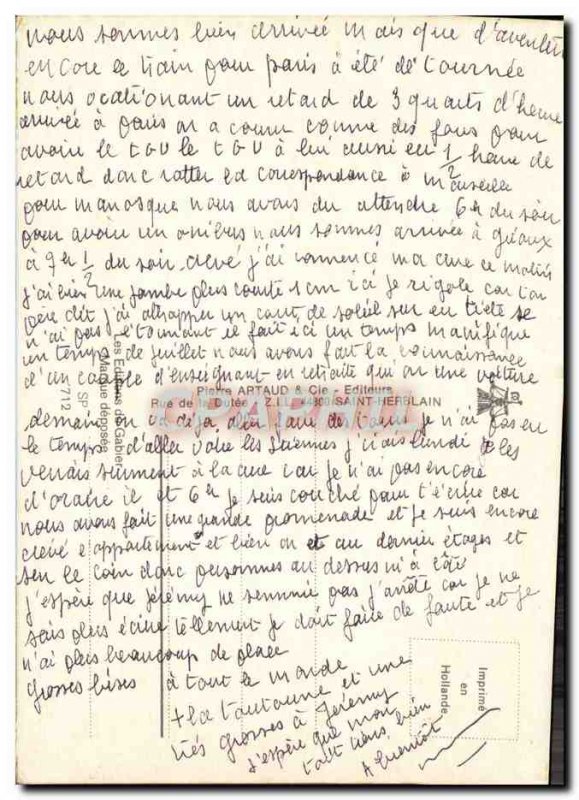 nous sommes bien arrivée mais que d'aventur
encore le train pour paris à été détournée
nous ocationant un retard de 3 quarts d'heure
arrivée à paris on a courru comme des fous pour
avoir le TGV le TGV à lui aussi eu 1/2 heure de
retard donc ratter la correspondance à marseille
pour manosque nous avons du attendre 6h du soir
pour avoir un onibus nous sommes arrivée à gréoux
à 9h 1/2 du soir crevé j'ai commencé ma cure ce matin
j'ai bien une jambe plus courte 1 cm ici je rigole car ton
père dit j'ai attrapper un coup de soleil sur en tiete se
n'ai pas étonnant il fait ici un temps manifique
un temps de juillet nous avons fait la connaissance
d'un couple d'enseignant en retraite qui on une voiture
demain on va déja aller faire des tours je n'ai pas eu
le temps d'aller voire les j'irais lundi les
venais surment à la cure car je n'ai pas encore
d'oraire il et 6h je suis couché pour t'écrire car
nous avons fait une grande promenade et je suis encore
crevé l'appartement et bien on et au dernier étages et
sur le coin donc personnes au dessus ni à côté
j'espère que Jérémy ne sennuie pas j'arrête car je ne
sais plus écrire tellement je doit faire de faute et je
n'ai plus beaucoup de place
grosses bises à tout le monde
+ la tautoune et une
très grosses à Jérémy
J'espère que mon
tout tiens bien
A bientôt
Pierre ARTAUD & Cie - Editeurs
Rue de la Dutée - Z.I. - 44800 SAINT-HERBLAIN
Les Editions du Gabier
(Marque déposée)
SP
5712
CPAPHIL
Imprimé
en
Hollande